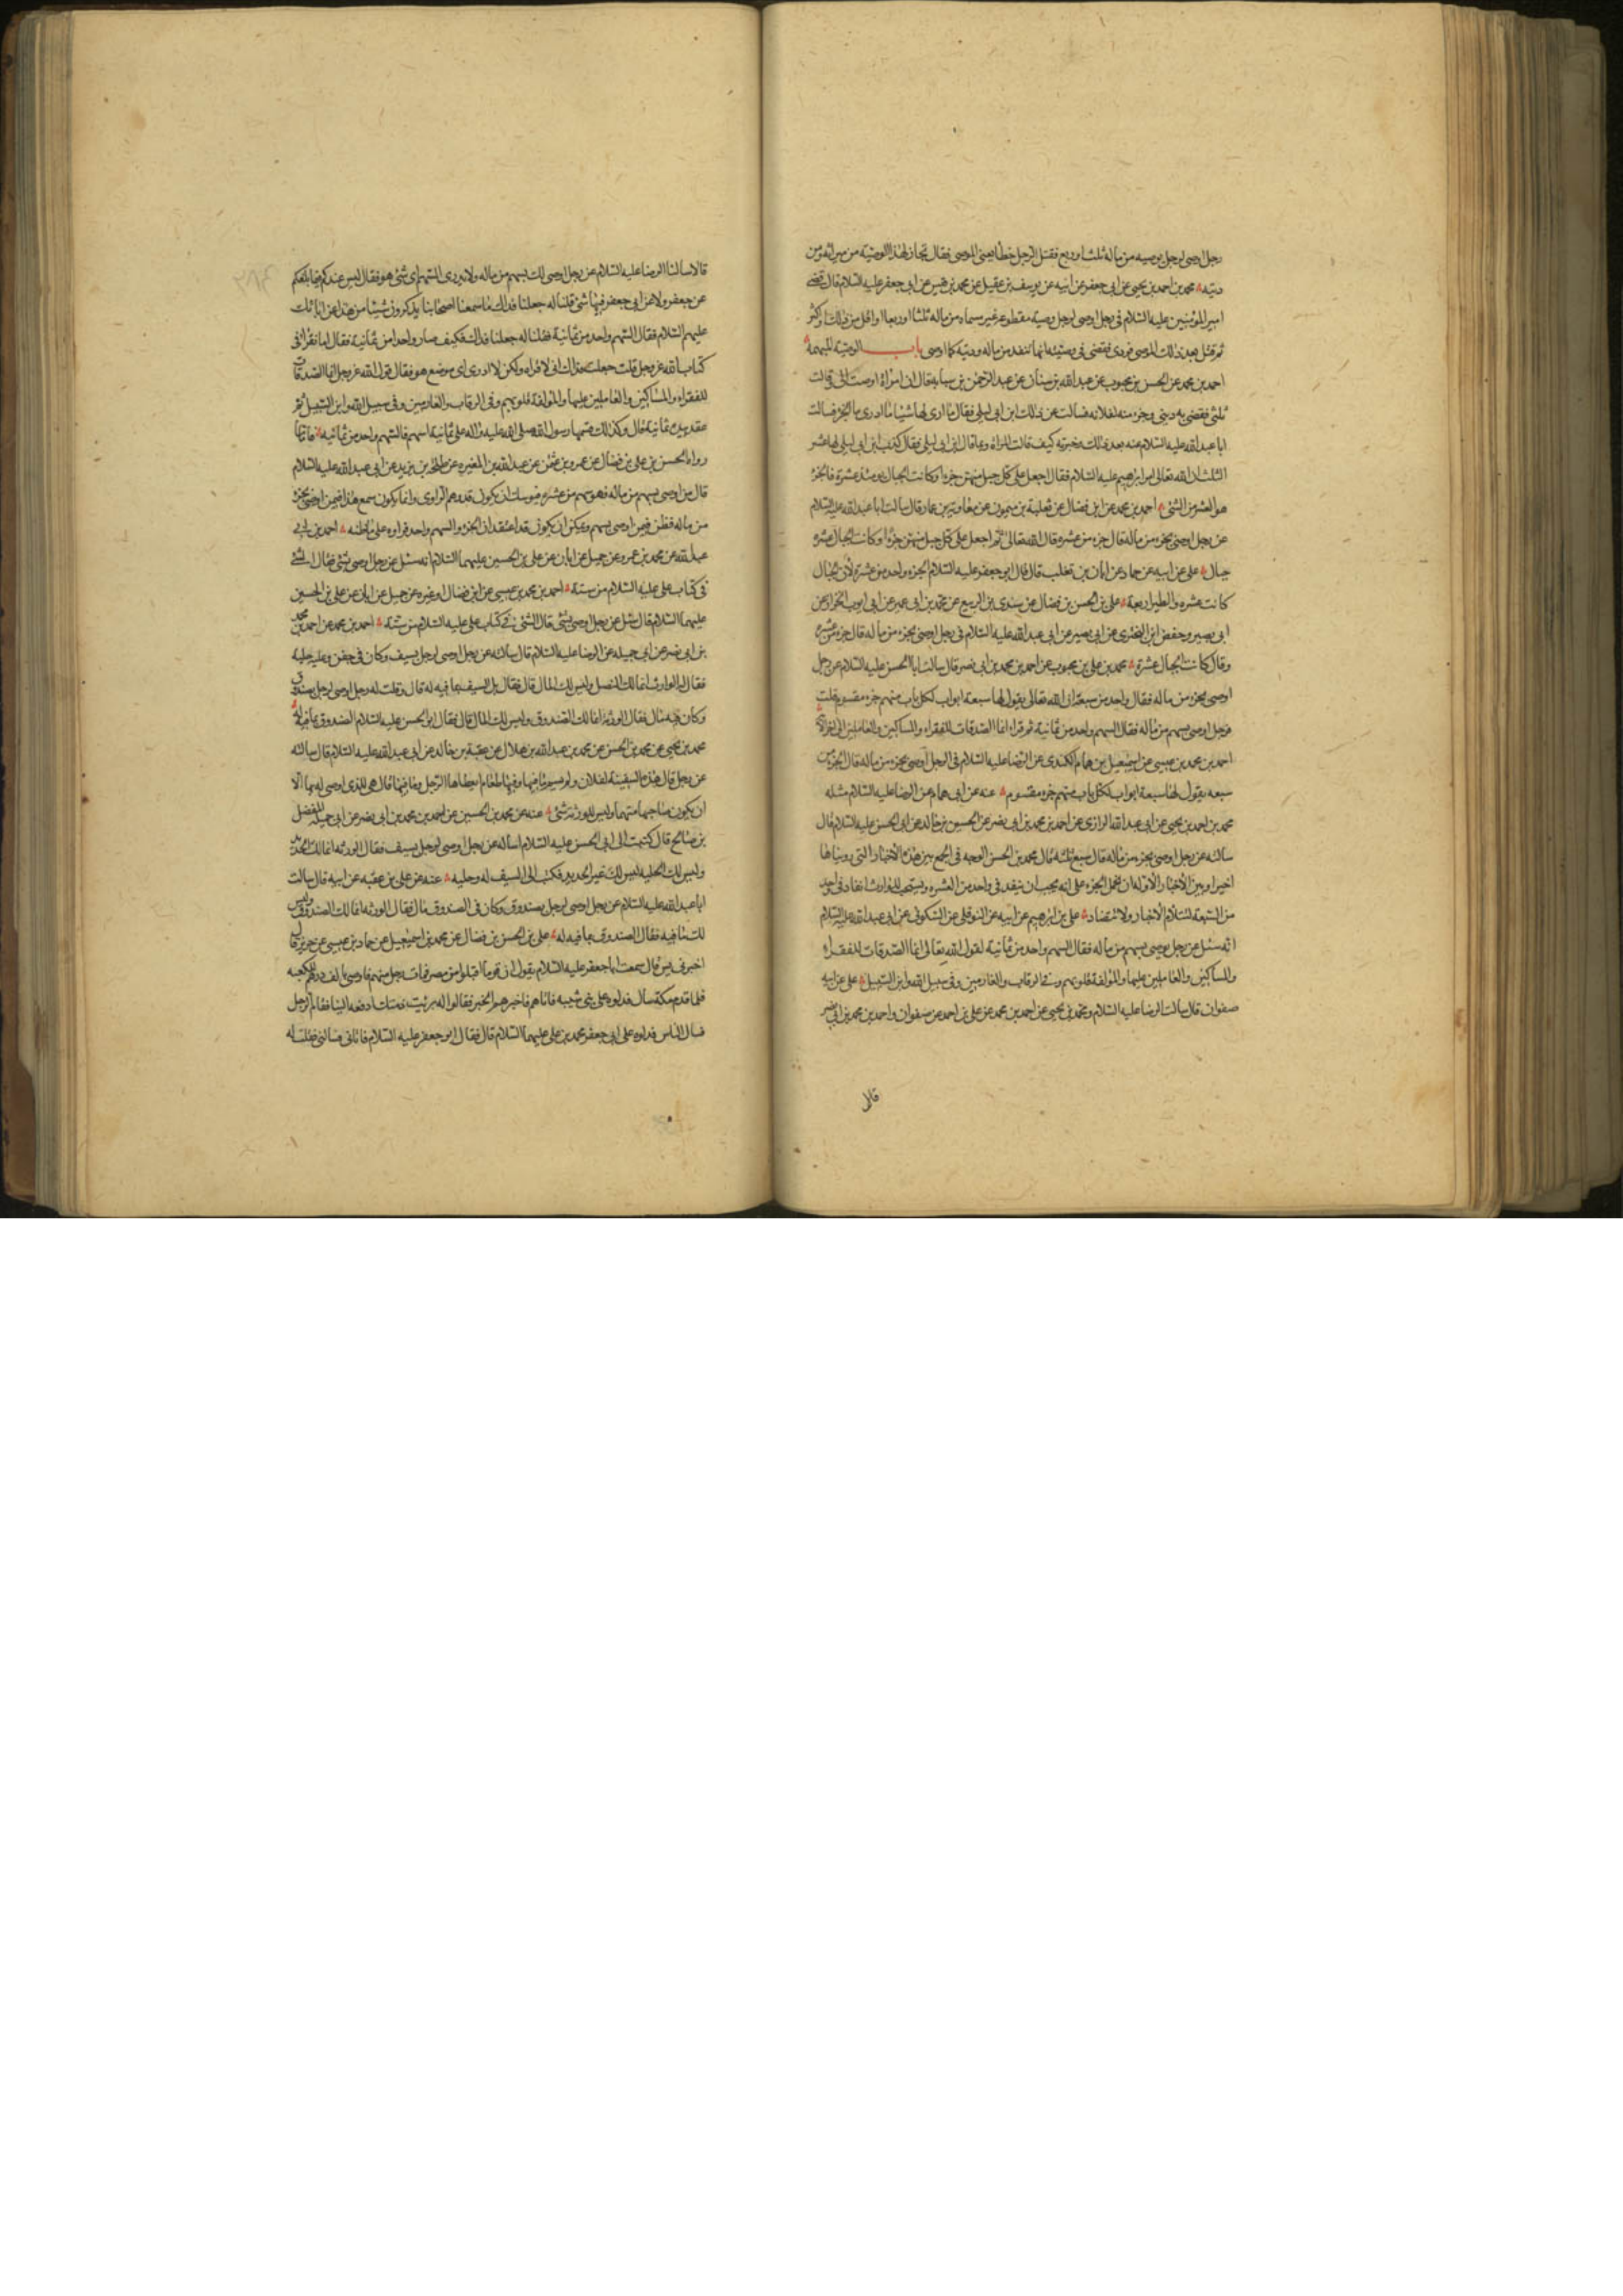 رجل اوصى لرجل بوصيه من ماله ثلث او ربع فقتل الرجل خطأ يعنى الموصى فقال تجاز لهذا الوصية من ميراثه ومن
ديته محمد بن احمد بن يحيى عن ابى جعفر عن ابيه عن يوسف بن عقيل عن محمد بن قيس عن ابى جعفر عليه السلام قال قضى
امير المؤمنين عليه السلام فى رجل اوصى لرجل وصية مقطوعه غير مسماه من ماله ثلثا او ربعا او اقل من ذلك او اكثر
ثم قتل بعد ذلك الموصى فودى فقضى فى وصيته انها تنفد من ماله وديته كما اوصى باب الوصية المبهمة
احمد بن محمد عن الحسن بن محبوب عن عبد الله بن سنان عن عبد الرحمن بن سيابه قال ان امراة اوصت الى وقالت
ثلثى فقضى به دينى وجزء منه لفلانه فسالت عن ذلك ابن ابى ليلى فقال ما ارى لها شيئا ما ادرى ما الجزء فسالت
ابا عبد الله عليه السلام عنه بعد ذلك وخبرته كيف قالت المراة وما قال ابن ابى ليلى فقال كذب ابن ابى ليلى لها عشر
الثلث ان الله تعالى امر ابراهيم عليه السلام فقال اجعل على كل جبل منهن جزءا وكانت الجبال يومئذ عشرة فالجزء
هو العشر من الشئ احمد بن محمد عن ابن فضال عن ثعلبة بن ميمون عن معاوية بن عمار قال سالت ابا عبد الله عليه السلام
عن رجل اوصى بجزء من ماله قال جزء من عشره قال الله تعالى ثم اجعل على كل جبل منهن جزءا وكانت الجبال عشره
جبال على عن ابيه عن حماد عن ابان بن تغلب قال قال ابو جعفر عليه السلام الجزء واحد من عشرة لأن الجبال
كانت عشره والطير اربعة على بن الحسن بن فضال عن سندى بن الربيع عن محمد بن ابى عمير عن ابى ايوب الخزاز عن
ابى بصير وحفص ابن البخترى عن ابى بصير عن ابى عبد الله عليه السلام فى رجل اوصى بجزء من ماله قال جزء من عشره
وقال كانت الجبال عشرة محمد بن على بن محبوب عن احمد بن محمد بن ابى نصر قال سالت ابا الحسن عليه السلام عن رجل
اوصى بجزء من ماله فقال واحد من سبعة ان الله تعالى يقول لها سبعة ابواب لكل باب منهم جزء مقسوم قلت
فرجل اوصى بسهم من ماله فقال السهم واحد من ثمانية ثم قراء انما الصدقات للفقراء والمساكين والعاملين الى اخر الآية
احمد بن محمد بن عيسى عن اسمعيل بن همام الكندى عن الرضا عليه السلام فى الرجل اوصى بجزء من ماله قال الجزء من
سبعه يقول لها سبعة ابواب لكل باب منهم جزء مقسوم عنه عن ابى همام عن الرضا عليه السلام مثله
محمد بن احمد بن يحيى عن ابى عبد الله الرازى عن احمد بن محمد بن ابى نصر عن الحسين بن خالد عن ابى الحسن عليه السلام قال
سالته عن رجل اوصى بجزء من ماله قال سبع ثلثه قال محمد بن الحسن الوجه فى الجمع بين هذه الأخبار التى رويناها
اخيرا وبين الأخبار الأوله ان نحمل الجزء على انه يجب ان ينفد فى واحد من العشره ويستحب للوارث انفاده فى واحد
من السبعة لتتلأم الأخبار ولا تتضاد على بن ابراهيم عن ابيه عن النوفلى عن السكونى عن ابى عبد الله عليه السلام
انه سئل عن رجل يوصى بسهم من ماله فقال السهم واحد من ثمانية لقول الله تعالى انما الصدقات للفقراء
والمساكين والعاملين عليها والمؤلفة قلوبهم وفى الرقاب والغارمين وفى سبيل الله وابن السبيل على عن ابيه
صفوان قال سالت الرضا عليه السلام ومحمد بن يحيى عن احمد بن محمد عن على بن احمد عن صفوان واحمد بن محمد بن ابى نصر
قال
قالا سالنا الرضا عليه السلام عن رجل اوصى لك بسهم من ماله ولا ندرى السهم اى شئ هو فقال ليس عندكم فيما بلغكم
عن جعفر ولا عن ابى جعفر فيها شئ قلنا له جعلنا فداك ما سمعنا اصحابنا يذكرون شيئا من هذا عن ابائك
عليهم السلام فقال السهم واحد من ثمانية فقلنا له جعلنا فداك فكيف صار واحدا من ثمانية فقال اما تقرأ فى
كتاب الله عز وجل قلت جعلت فداك انى لاقراه ولكن لا ادرى اى موضع هو فقال قول الله عز وجل انما الصدقات
للفقراء والمساكين والعاملين عليها والمؤلفة قلوبهم وفى الرقاب والغارمين وفى سبيل الله وابن السبيل ثم
عقد بيده ثمانية قال وكذلك قسمها رسول الله صلى الله عليه واله على ثمانية اسهم فالسهم واحد من ثمانيه فاما ما
رواه الحسن بن على بن فضال عن عمرو بن عثمن عن عبد الله بن المغيره عن طلحة بن يزيد عن ابى عبد الله عليه السلام
قال من اوصى بسهم من ماله فهو سهم من عشره فيوشك ان يكون قد وهم الراوى وانما يكون سمع هذا فيمن اوصى بجزء
من ماله فظن فيمن اوصى بسهم ويمكن ان يكون قد اعتقد ان الجزء والسهم واحد فراوه على ما ظنه احمد بن ابى
عبد الله عن محمد بن عمرو عن جميل عن ابان عن على بن الحسين عليهما السلام انه سئل عن رجل اوصى بشئ فقال الشئ
فى كتاب على عليه السلام من ستة احمد بن محمد بن عيسى عن ابن فضال او غيره عن جميل عن ابان عن على بن الحسين
عليهما السلام قال سئل عن رجل اوصى بشئ قال الشئ فى كتاب على عليه السلام من ستة احمد بن محمد عن احمد بن محمد
بن ابى نصر عن ابى جميله عن الرضا عليه السلام قال سالته عن رجل اوصى لرجل بسيف وكان فى جفن وعليه حلية
فقال له الوارث انما لك النصل وليس لك المال قال فقال بل السيف بما فيه له قال وقلت له رجل اوصى لرجل بصندوق
وكان فيه مال فقال الورثة انما لك الصندوق وليس لك المال قال فقال ابو الحسن عليه السلام الصندوق بما فيه له
محمد بن يحيى عن محمد بن الحسن عن محمد بن عبد الله بن هلال عن عقبة بن خالد عن ابى عبد الله عليه السلام قال سالته
عن رجل قال هذه السفينة لفلان ولم يسم ما فيها وفيها طعام ايعطاها الرجل وما فيها قال هى للذى اوصى له بها الا
ان يكون صاحبها متهما وليس للورثة شئ عنه عن محمد بن الحسين عن احمد بن محمد بن ابى نصر عن ابى جميلة المفضل
بن صالح قال كتبت الى ابى الحسن عليه السلام اساله عن رجل اوصى لرجل بسيف فقال الورثه انما لك الحديد
وليس لك الحليه ليس لك غير الحديد فكتب الى السيف له وحليه عنه عن على بن عقبه عن ابيه قال سالت
ابا عبد الله عليه السلام عن رجل اوصى لرجل بصندوق وكان فى الصندوق مال فقال الورثه انما لك الصندوق وليس
لك ما فيه فقال الصندوق بما فيه له على بن الحسن بن فضال عن محمد بن اسمعيل عن حماد بن عيسى عن حريز قال
اخبرنى يس قال سمعت ابا جعفر عليه السلام يقول ان قوما اقبلوا من مصر فمات رجل منهم فاوصى بالف درهم للكعبه
فلما قدم مكة سال فدلوه على بنى شيبه فاتاهم فاخبرهم الخبر فقالوا له برئت ذمتك ادفعه الينا فقام الرجل
فسال الناس فدلوه على ابى جعفر محمد بن على عليهما السلام قال فقال ابو جعفر عليه السلام فاتانى فسالنى فقلت له